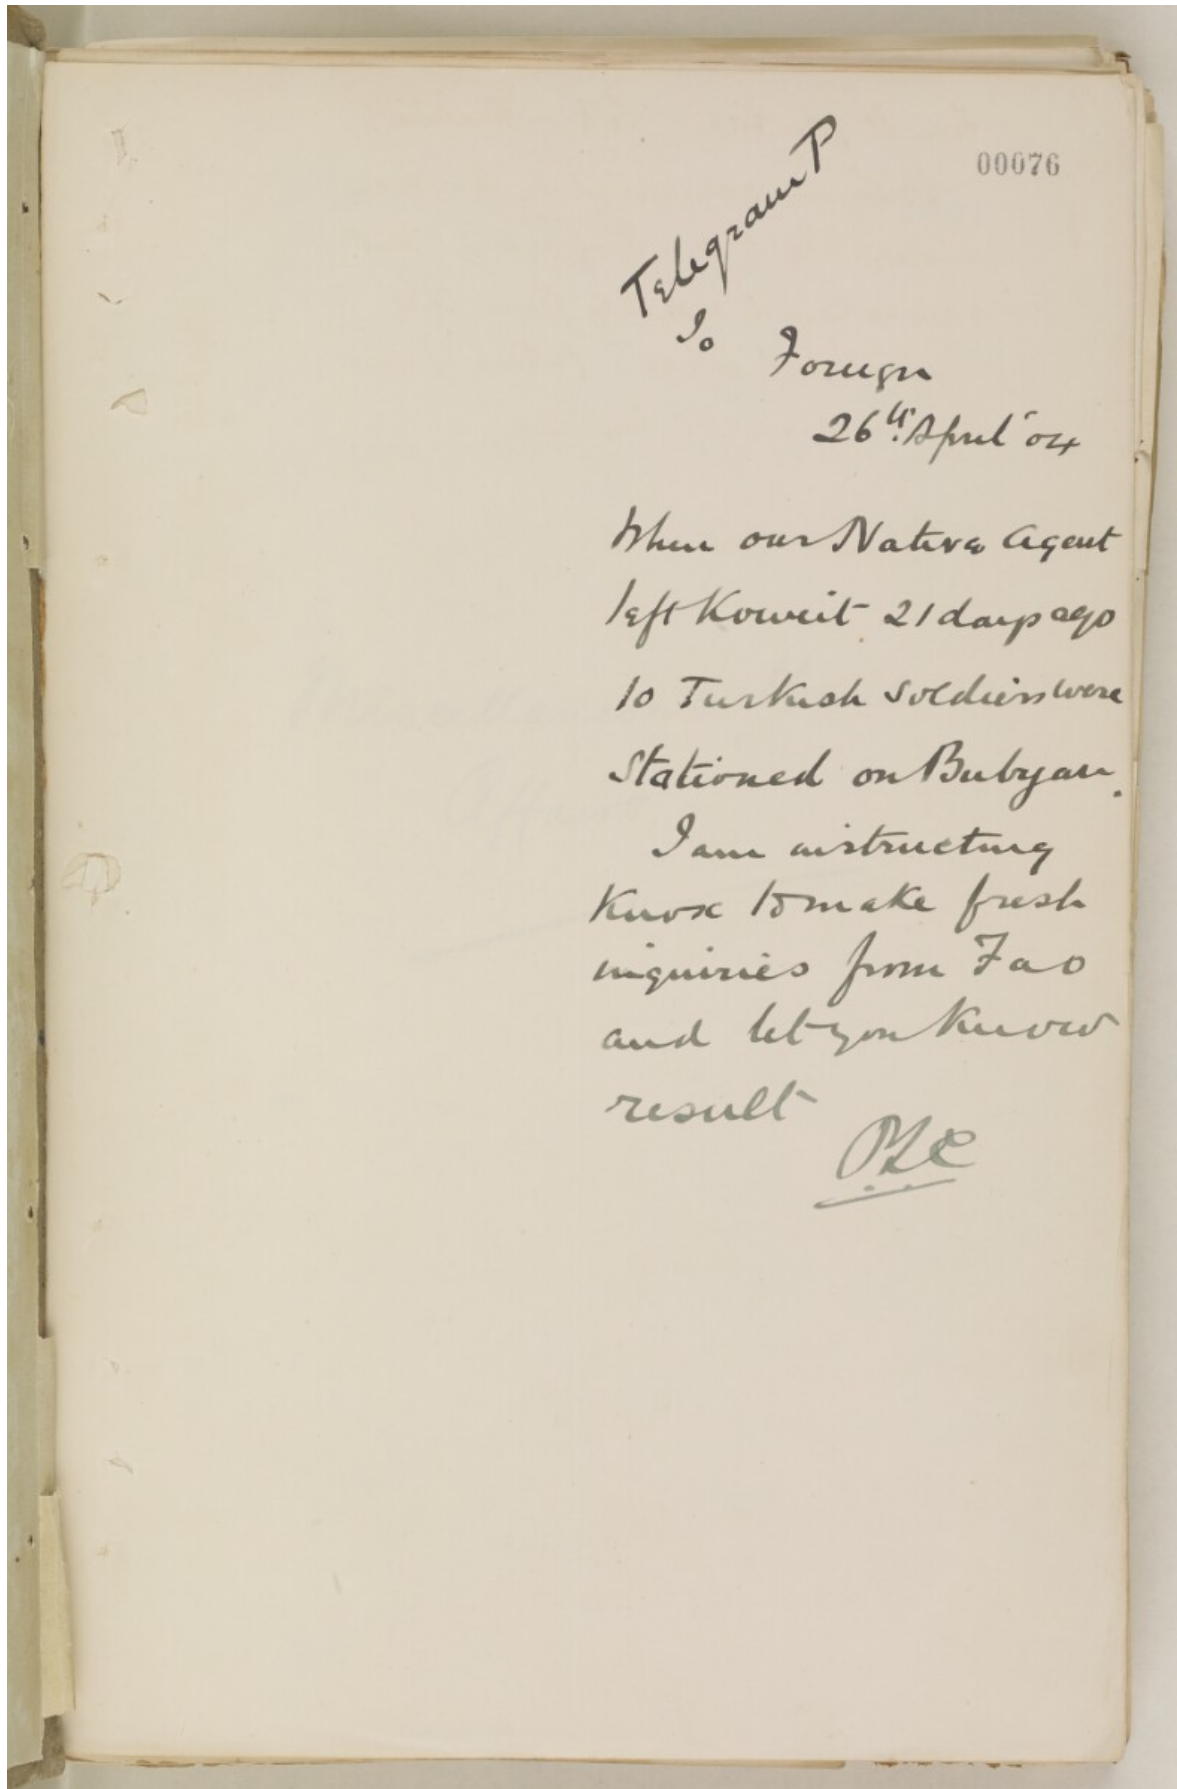 00076
Telegram P
To Foreign
26th April '04
When our Native Agent
left Koweit 21 days ago
10 Turkish soldiers were
stationed on Bubyan.
I am instructing
Knox to make fresh
inquiries from Fao
and let you know
result